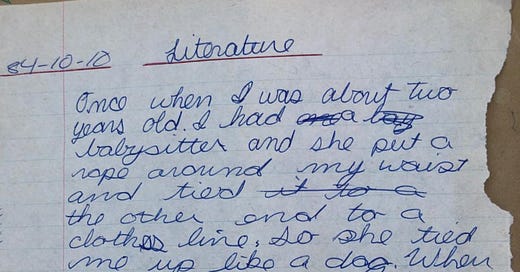 Literature
84-10-10
Once when I was about two
years old. I had a
babysitter and she put a
rope around my waist
and tied it to a
the other end to a
clothes line. So she tied
me up like a dog. When